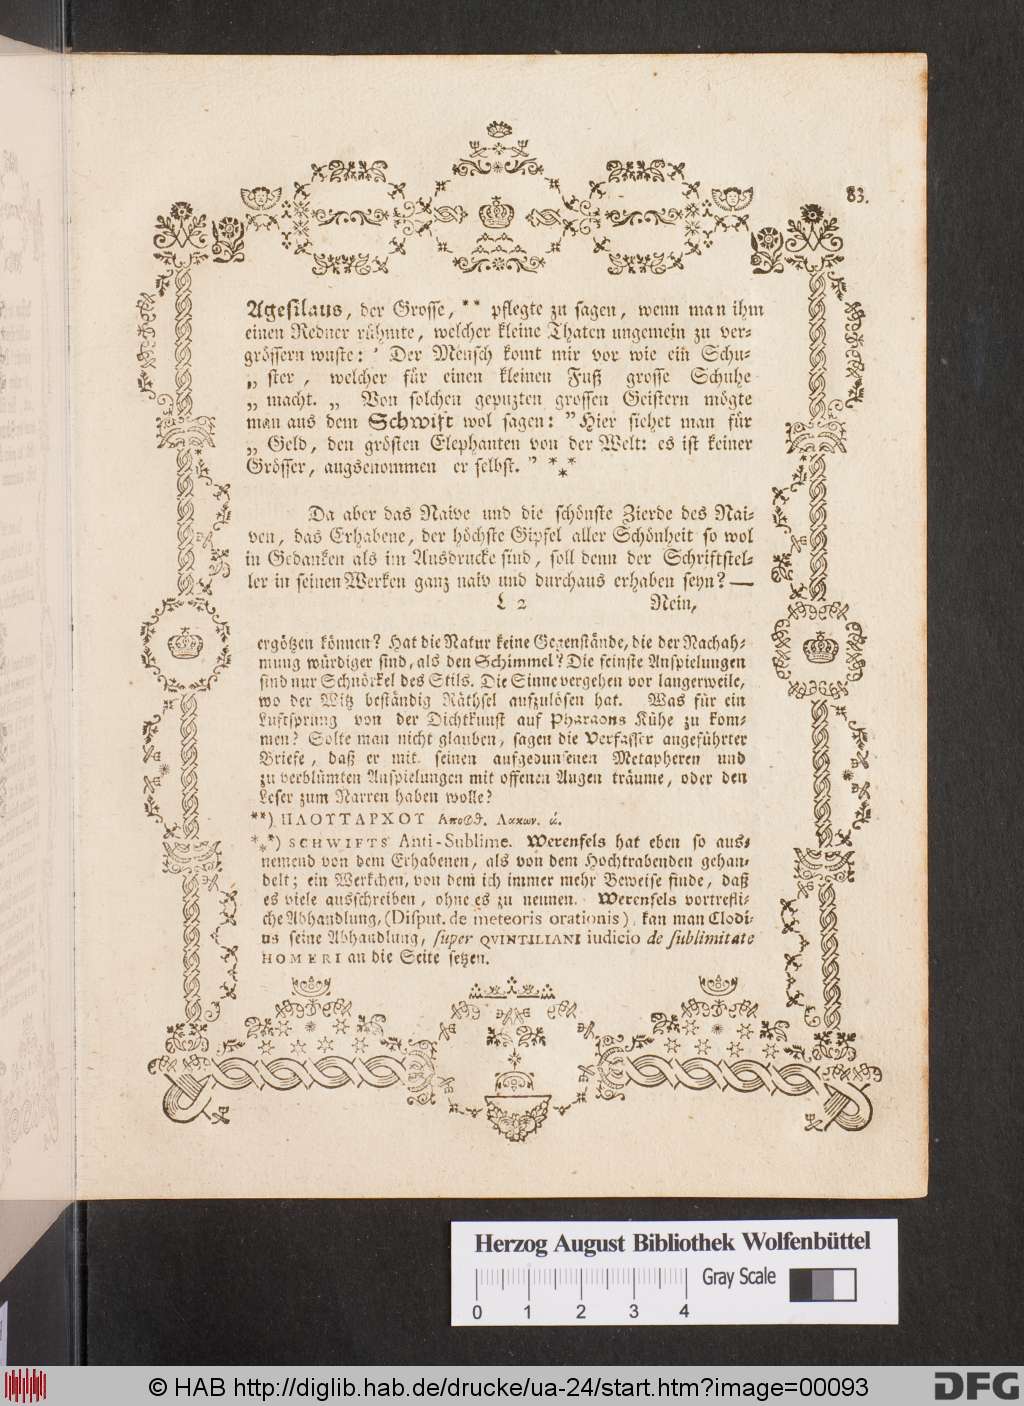 83.
Agesilaus, der Grosse, ** pflegte zu sagen, wenn man ihm
einen Redner rühmte, welcher kleine Thaten ungemein zu ver-
grössern wuste: ' Der Mensch komt mir vor wie ein Schu-
„ ster, welcher für einen kleinen Fuß grosse Schuhe
„ macht. „ Von solchen geputzten grossen Geistern mögte
man aus dem Schwift wol sagen: ” Hier siehet man für
„ Geld, den grösten Elephanten von der Welt: es ist keiner
Grösser, augsenommen er selbst. ” ***
Da aber das Naive und die schönste Zierde des Nai-
ven, das Erhabene, der höchste Gipfel aller Schönheit so wol
in Gedanken als im Ausdrucke sind, soll denn der Schriftstel-
ler in seinen Werken ganz naiv und durchaus erhaben seyn? —
L 2 Nein,
ergötzen können? Hat die Natur keine Gegenstände, die der Nachah-
mung würdiger sind, als den Schimmel? Die feinste Anspielungen
sind nur Schnörkel des Stils. Die Sinne vergehen vor langerweile,
wo der Witz beständig Räthsel aufzulösen hat. Was für ein
Luftsprung von der Dichtkunst auf Pharaons Kühe zu kom-
men? Solte man nicht glauben, sagen die Verfasser angeführter
Briefe, daß er mit seinen aufgedunsenen Metapheren und
zu verblümten Anspielungen mit offenen Augen träume, oder den
Leser zum Narren haben wolle?
**) ΠΛΟΥΤΑΡΧΟΥ Αποφθ. Λακων. ά.
***) SCHWIFTS Anti-Sublime. Werenfels hat eben so aus-
nemend von dem Erhabenen, als von dem Hochtrabenden gehan-
delt; ein Werkchen, von dem ich immer mehr Beweise finde, daß
es viele ausschreiben, ohne es zu nennen. Werenfels vortrefli-
che Abhandlung, (Disput. de meteoris orationis) kan man Clodi-
us seine Abhandlung, super QVINTILIANI iudicio de sublimitate
HOMERI an die Seite setzen.
Herzog August Bibliothek Wolfenbüttel
Gray Scale
0 1 2 3 4
© HAB http://diglib.hab.de/drucke/ua-24/start.htm?image=00093
DFG